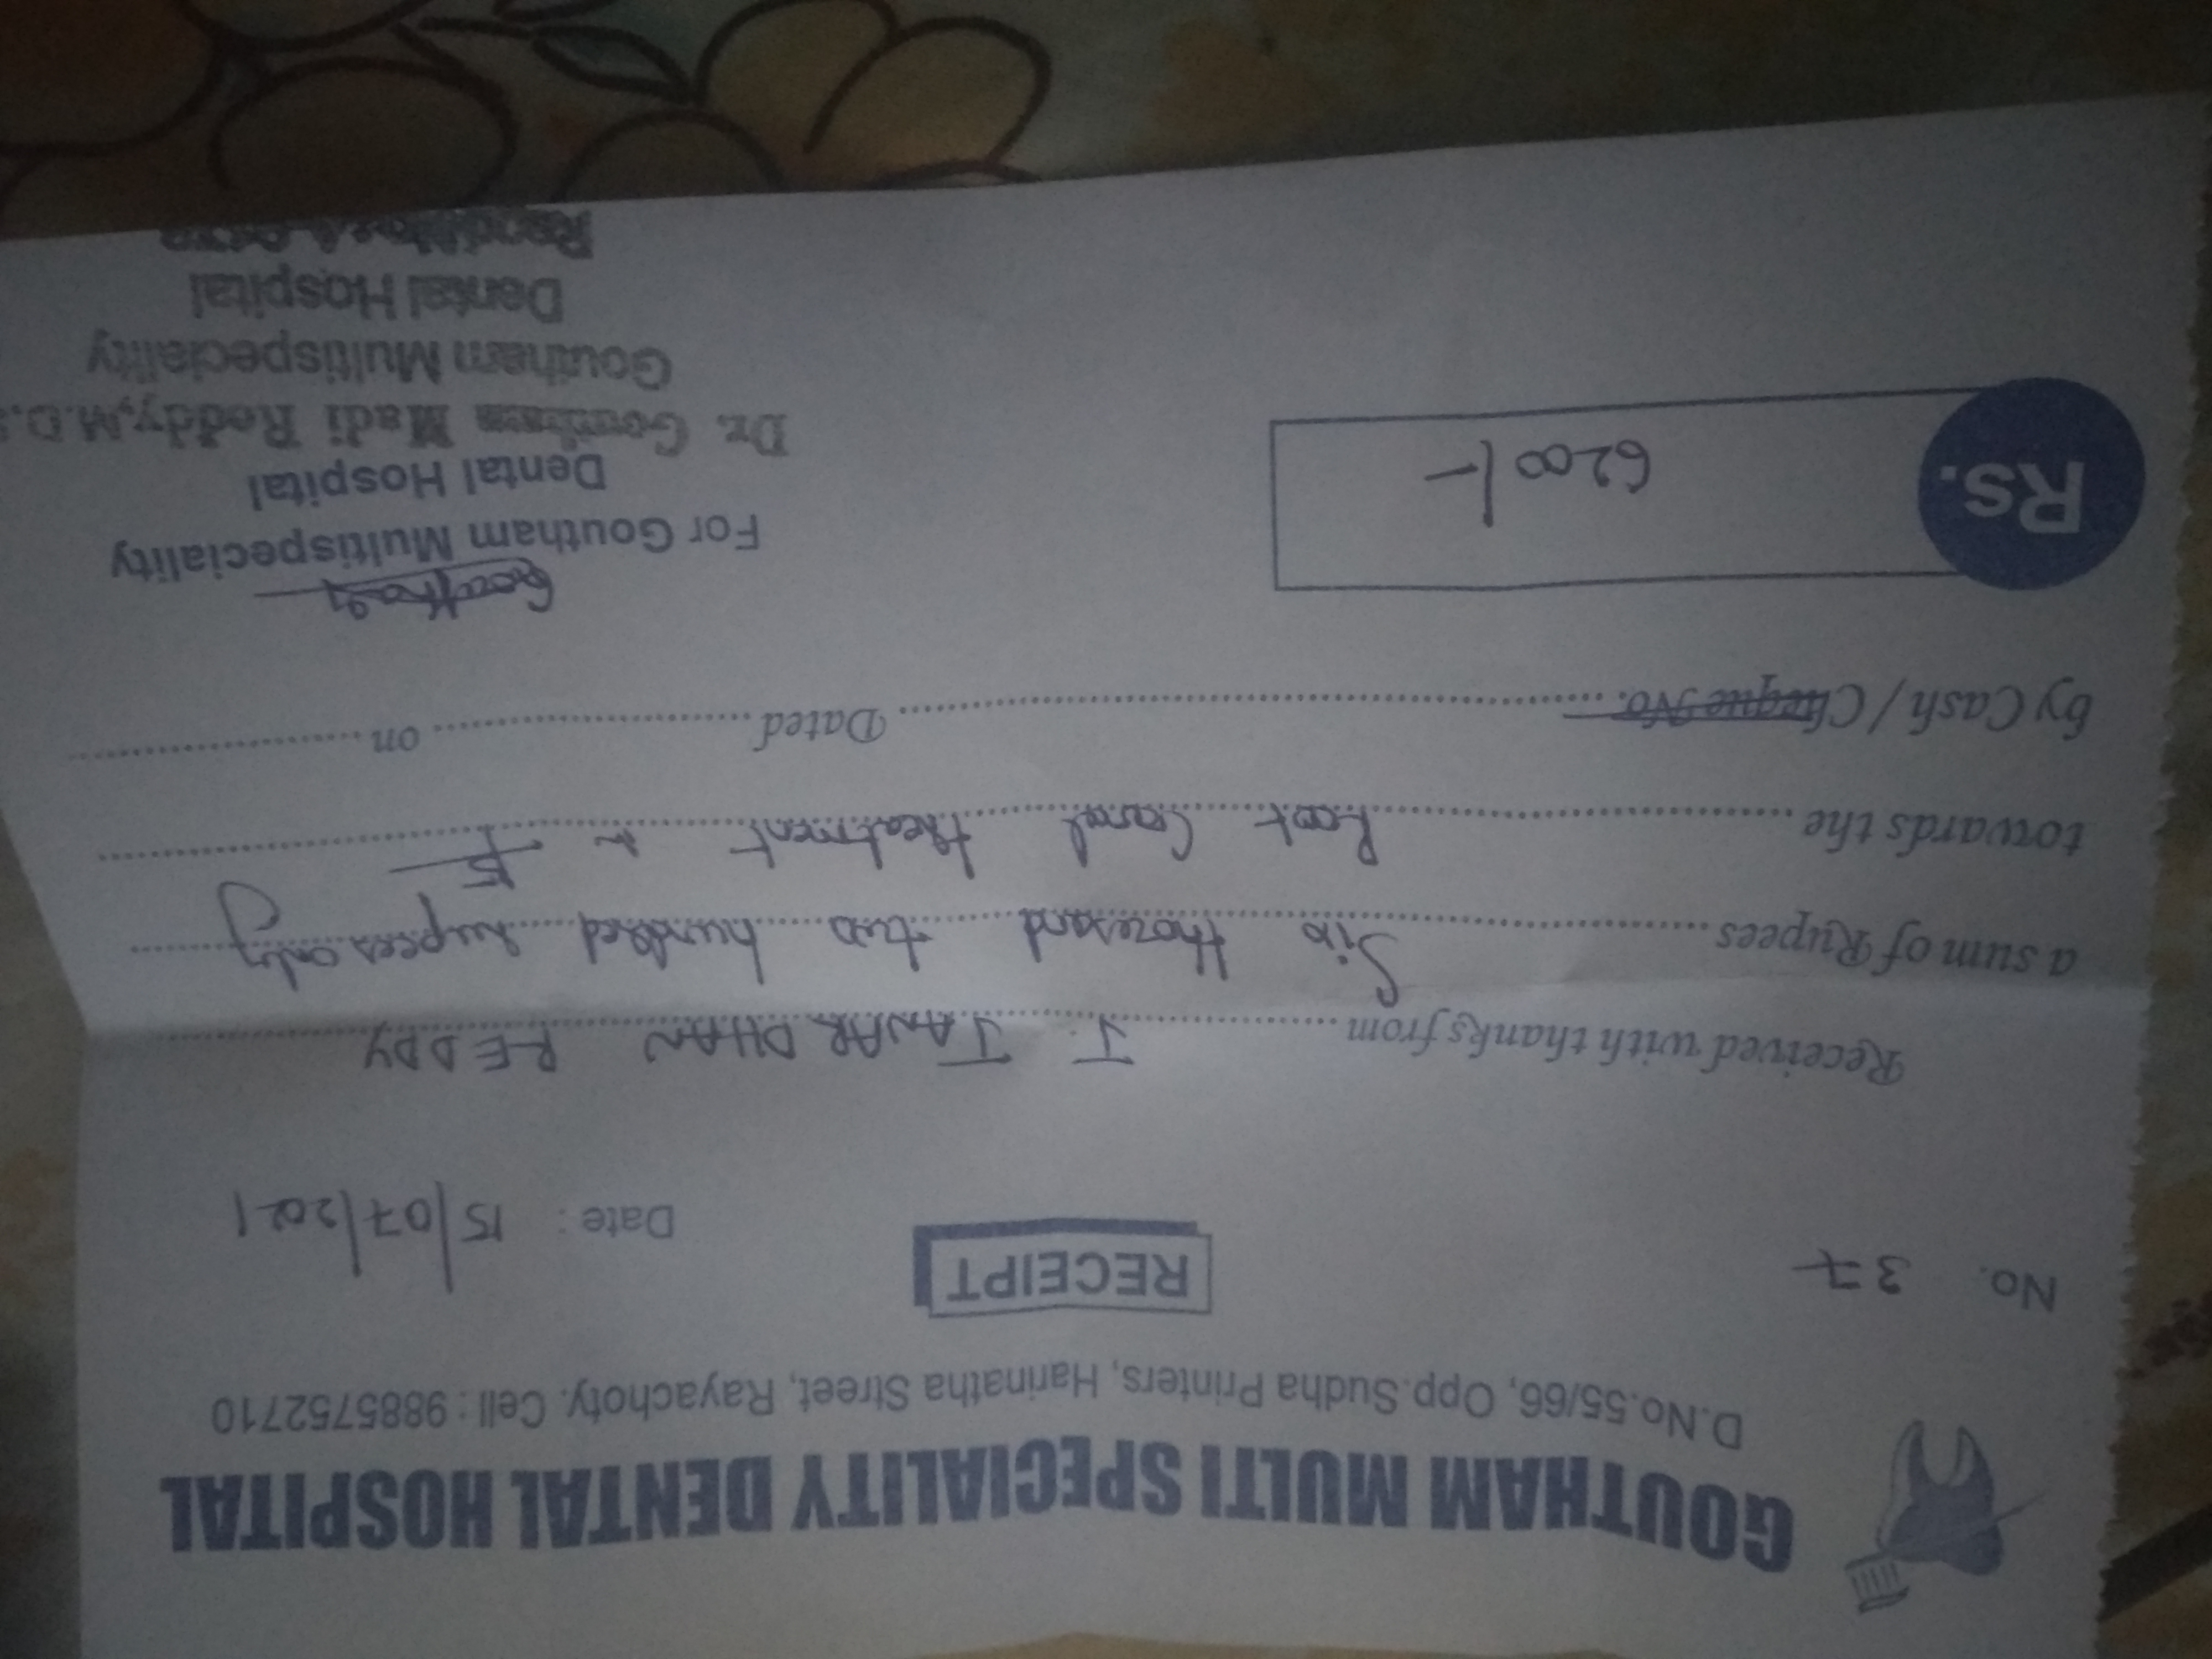 GOUTHAM MULTI SPECIALITY DENTAL HOSPITAL
D.No.55/66, Opp.Sudha Printers, Harinatha Street, Rayachoty. Cell : 9885752710
No. 37
RECEIPT
Date : 15/07/2021
Received with thanks from J. JANARDHAN REDDY
a sum of Rupees Six thousand two hundred rupees only
towards the Root Canal treatment
by Cash / Cheque No. Dated on
Rs. 6200/-
For Goutham Multispeciality
Dental Hospital
Dr. Goutham Madi Reddy, M.D.
Goutham Multispeciality
Dental Hospital